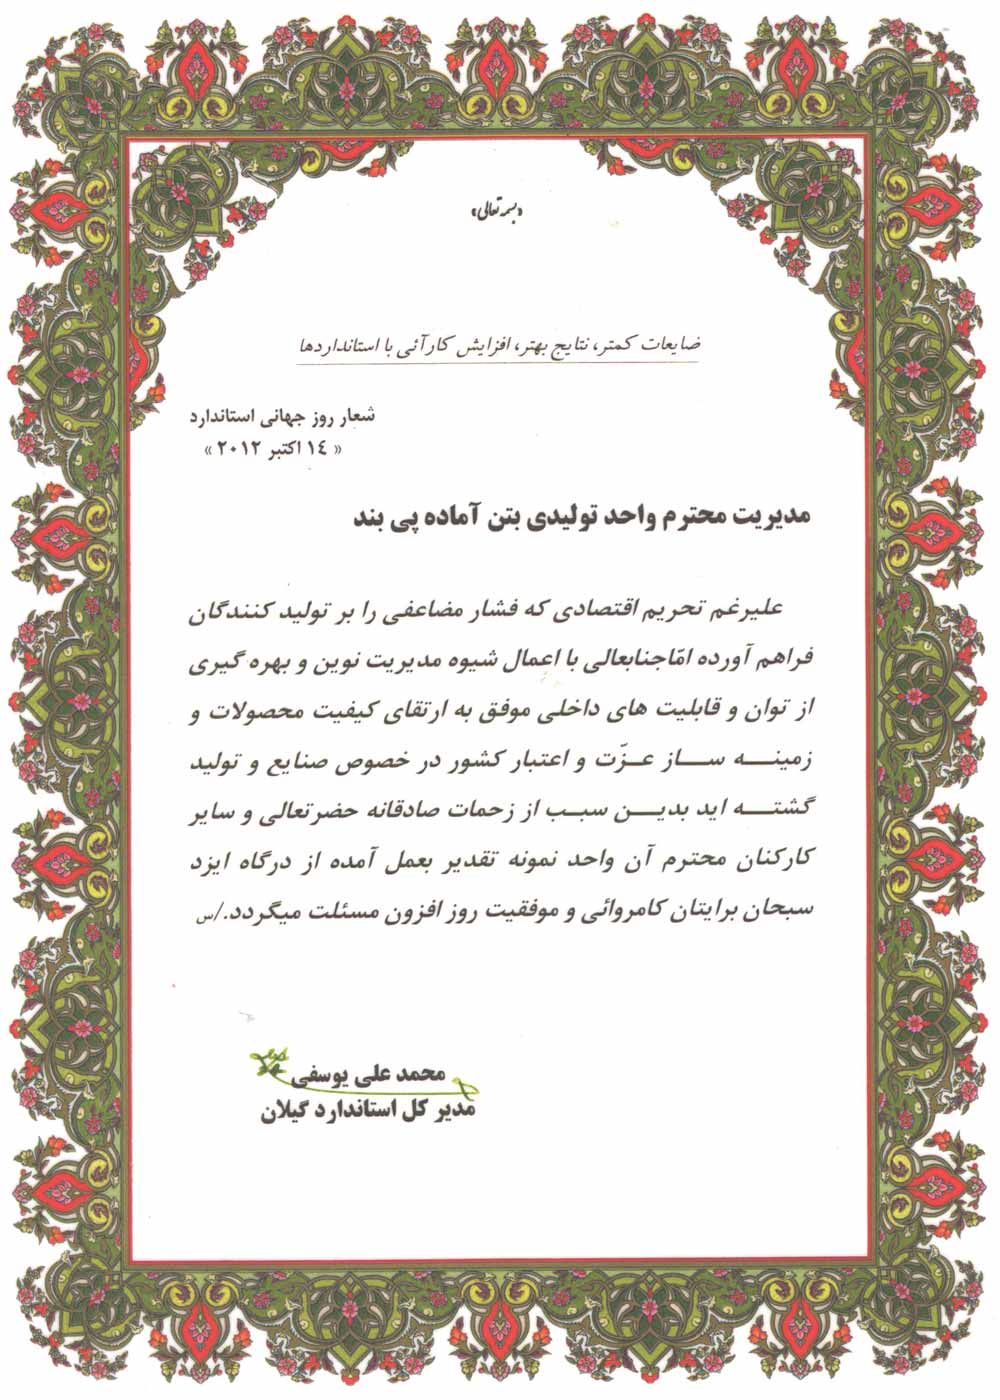 «بسمه تعالی»
ضایعات کمتر، نتایج بهتر، افزایش کارآئی با استانداردها
شعار روز جهانی استاندارد
« ١٤ اکتبر ٢٠١٢ »
مدیریت محترم واحد تولیدی بتن آماده پی بند
علیرغم تحریم اقتصادی که فشار مضاعفی را بر تولید کنندگان
فراهم آورده امّاجنابعالی با اعمال شیوه مدیریت نوین و بهره گیری
از توان و قابلیت های داخلی موفق به ارتقای کیفیت محصولات و
زمینه ساز عزّت و اعتبار کشور در خصوص صنایع و تولید
گشته اید بدین سبب از زحمات صادقانه حضرتعالی و سایر
کارکنان محترم آن واحد نمونه تقدیر بعمل آمده از درگاه ایزد
سبحان برایتان کامروائی و موفقیت روز افزون مسئلت میگردد./س
محمد علی یوسفی
مدیر کل استاندارد گیلان